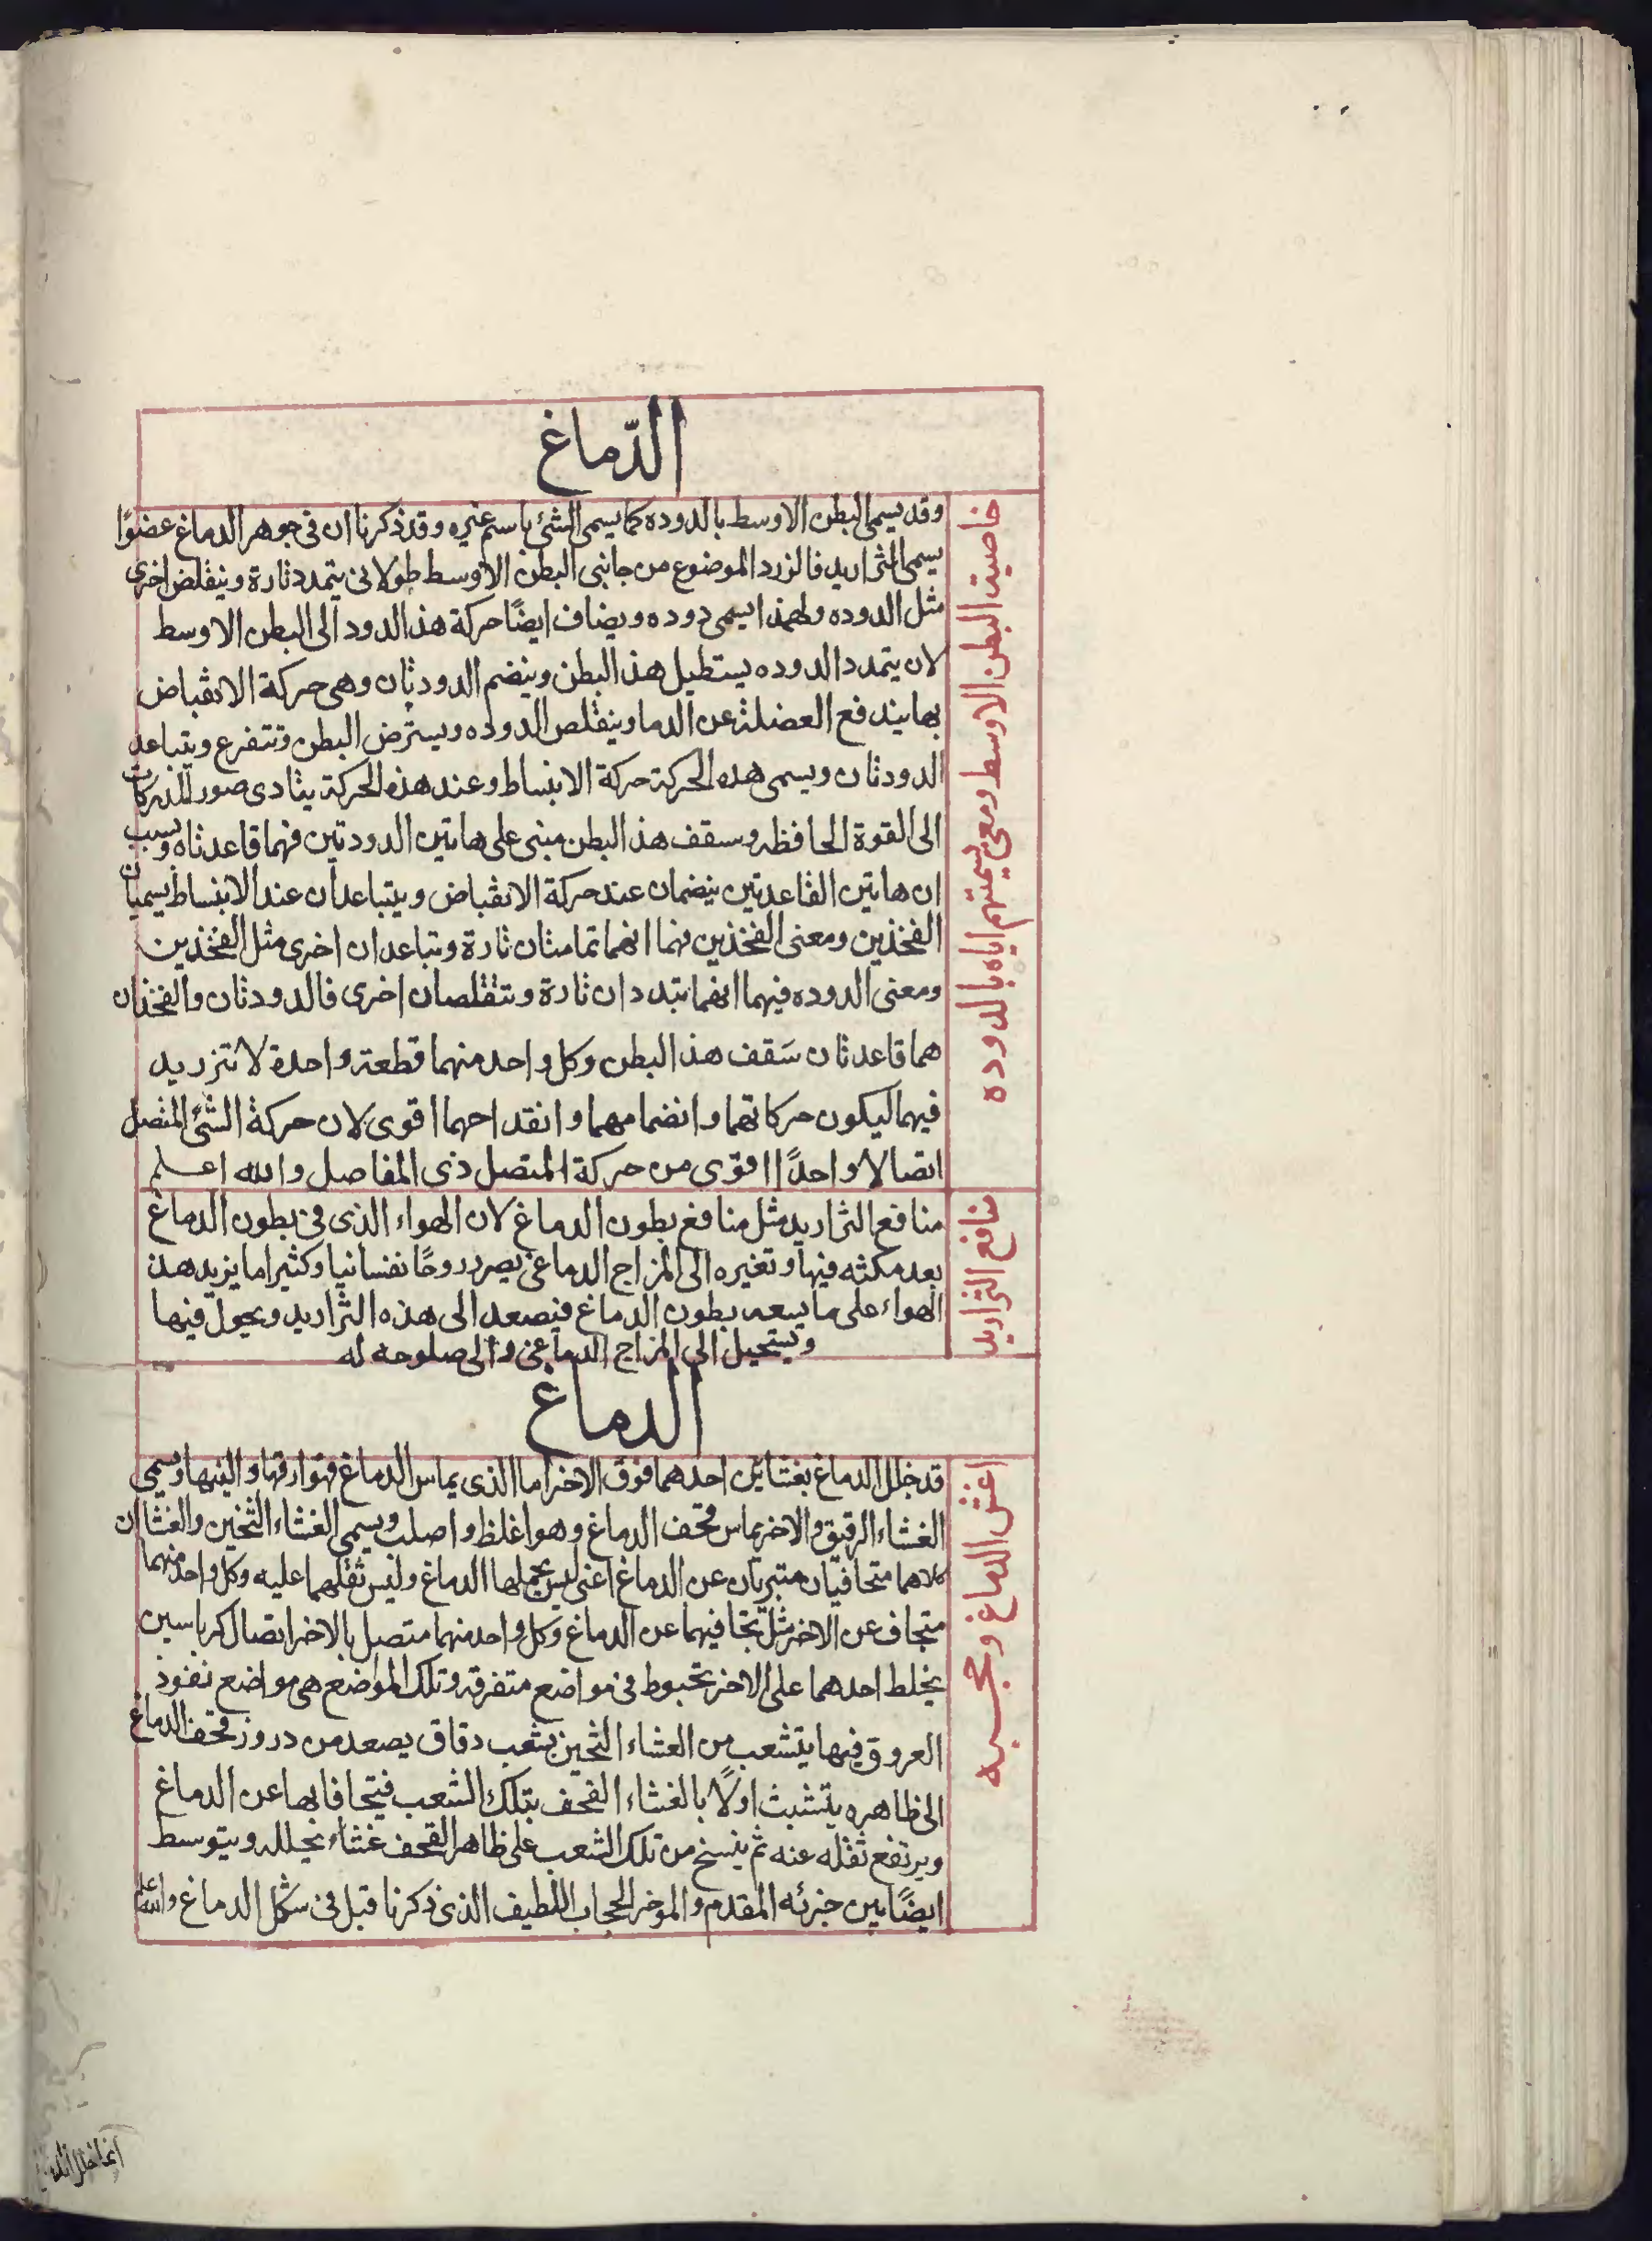 الدّماغ
خاصية البطن الاوسط ومعنى تسميتهم اياه بالدوده
وقد يسمى البطن الاوسط بالدوده كما يسمى الشئ باسم غيره وقد ذكرنا ان فى جوهر الدماغ عضوًا
يسمى التزاريد فالزرد الموضوع من جانبى البطن الاوسط طولانى يتمدد تارة ويتقلص اخرى
مثل الدوده ولهذا يسمى دوده ويضاف ايضًا حركة هذا الدود الى البطن الاوسط
لان يتمدد الدوده يستطيل هذا البطن وينضم الدودتان وهى حركة الانقباض
بها يندفع العضلة عن الدما وينقلص الدوده ويسترض البطن وتتفرع ويتباعد
الدودتان ويسمى هذه الحركة حركة الانبساط وعند هذه الحركة يتادى صور المدركات
الى القوة الحافظه وسقف هذا البطن مبنى على هاتين الدودتين فهما قاعدتاه وبسبب
ان هاتين القاعدتين ينضمان عند حركة الانقباض ويتباعدان عند الانبساط يسميان
الفخذين ومعنى الفخذين فهما انهما تماستان تارة وتباعدان اخرى مثل الفخذين
ومعنى الدوده فيهما انهما يتمددان تارة وتتقلصان اخرى فالدودتان والفخذان
هما قاعدتان سَقف هذا البطن وكل واحد منهما قطعة واحدة لا تزريد
فيهما ليكون حركاتهما وانضمامهما وانقداحهما اقوى لان حركة الشئ المتصل
اتصالا واحدًا اقوى من حركة المتصل ذى المفاصل والله اعلم
منافع التزاريد
منافع التزاريد مثل منافع بطون الدماغ لان الهواء الذى فى بطون الدماغ
بعد مكثه فيها وتغيره الى المزاج الدماغى يصير روحًا نفسانيا وكثيرا ما يزيد هذا
الهواء على ما يسعه بطون الدماغ فيصعد الى هذه التزاريد ويجول فيها
ويستحيل الى المزاج الدماغى والى صلوحه له
الدماغ
اغشية الدماغ وحجبه
قد جلل الدماغ بغشائين احدهما فوق الاخر اما الذى يماس الدماغ فهو ارقها والينها ويسمى
الغشاء الرقيق والاخر يماس قحف الدماغ وهو اغلظ واصلب ويسمى الغشاء الثخين والغشاان
كلاهما متجافيان متبريان عن الدماغ اعنى ليس يحملها الدماغ وليس ثقلهما عليه وكل واحد منهما
متجاف عن الاخر مثل تجافيهما عن الدماغ وكل واحد منهما متصل بالاخر اتصال كرباسين
يخلط احدهما على الاخر بخيوط فى مواضع متفرقه وتلك المواضع هى مواضع نفوذ
العروق فيها يتشعب من الغشاء الثخين شعب دقاق يصعد من دروز قحف الدماغ
الى ظاهره يتشبث اولًا بالغشاء القحف بتلك الشعب فيتجافا بها عن الدماغ
ويرتفع ثقله عنه ثم ينسج من تلك الشعب على ظاهر القحف غشاء يجلله ويتوسط
ايضًا بين جزئه المقدم والموخر الحجاب اللطيف الذى ذكرنا قبل فى شكل الدماغ والله اعلم